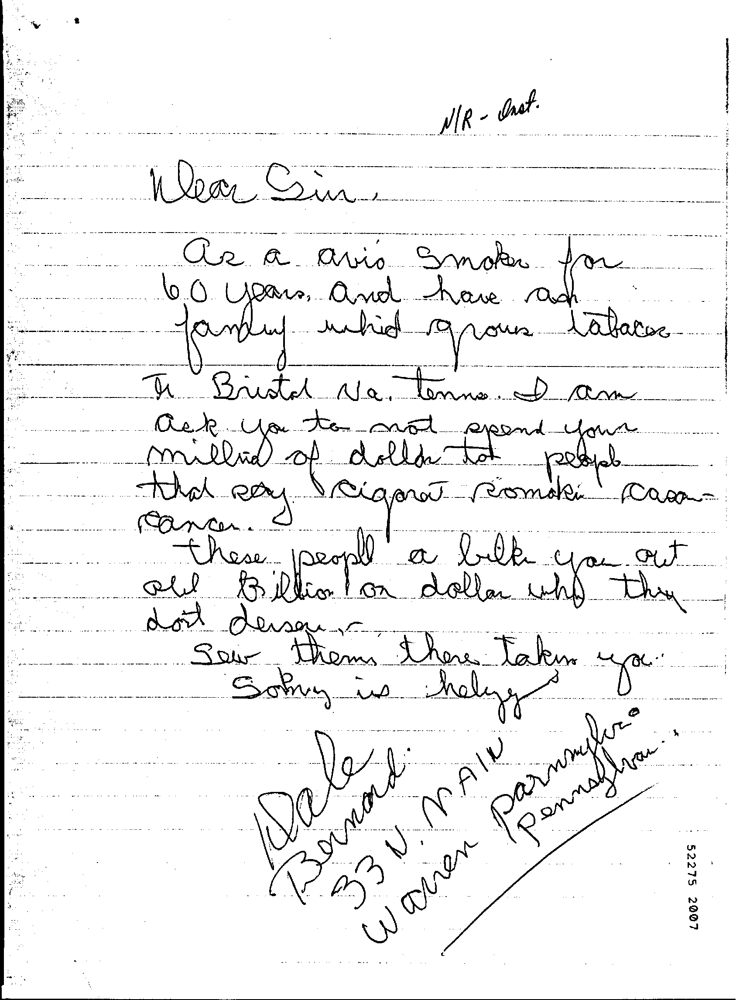 N/R - Inst.
Dear Sir,
As a avio smoker for
60 years, and have an
family whid grous tabacco
In Bristol Va. tenne. I am
ask you to not spend your
millio of dollar tot peopl
that say cigaret somokin
cancer.
these peopll a bilk you out
old Billion on dollar who they
dont
Sew them, there taken you
is
Dale
Bernard.
33 N. MAIN
Warren
Pennsylvan
52275 2007